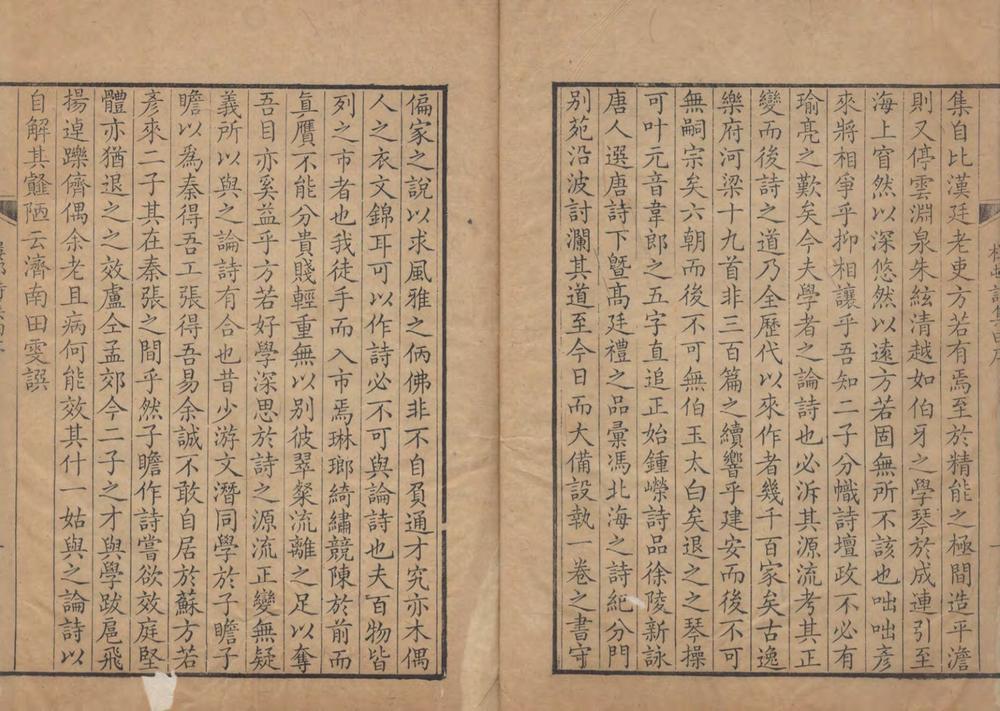 集自比漢廷老吏方若有焉至於精能之極間造平澹
則又停雲淵泉朱絃清越如伯牙之學琴於成連引至
海上窅然以深悠然以遠方若固無所不該也咄咄彦
來將相爭乎抑相讓乎吾知二子分幟詩壇政不必有
瑜亮之歎矣今夫學者之論詩也必泝其源流考其正
變而後詩之道乃全歷代以來作者幾千百家矣古逸
樂府河梁十九首非三百篇之續響乎建安而後不可
無嗣宗矣六朝而後不可無伯玉太白矣退之之琴操
可叶元音韋郎之五字直追正始鍾嶸詩品徐陵新詠
唐人選唐詩下曁高廷禮之品彙馮北海之詩紀分門
别苑沿波討瀾其道至今日而大備設執一卷之書守
偏家之說以求風雅之俩佛非不自負通才究亦木偶
人之衣文錦耳可以作詩必不可與論詩也夫百物皆
列之市者也我徒手而入市焉琳瑯綺繡競陳於前而
眞贋不能分貴賤輕重無以别彼翠粲流離之足以奪
吾目亦奚益乎方若好學深思於詩之源流正變無疑
義所以與之論詩有合也昔少游文潛同學於子瞻子
瞻以爲秦得吾工張得吾易余誠不敢自居於蘇方若
彥來二子其在秦張之間乎然子瞻作詩嘗欲效庭堅
體亦猶退之之效盧仝孟郊今二子之才與學跋扈飛
揚逴躒儕偶余老且病何能效其什一姑與之論詩以
自解其韰陋云濟南田雯譔